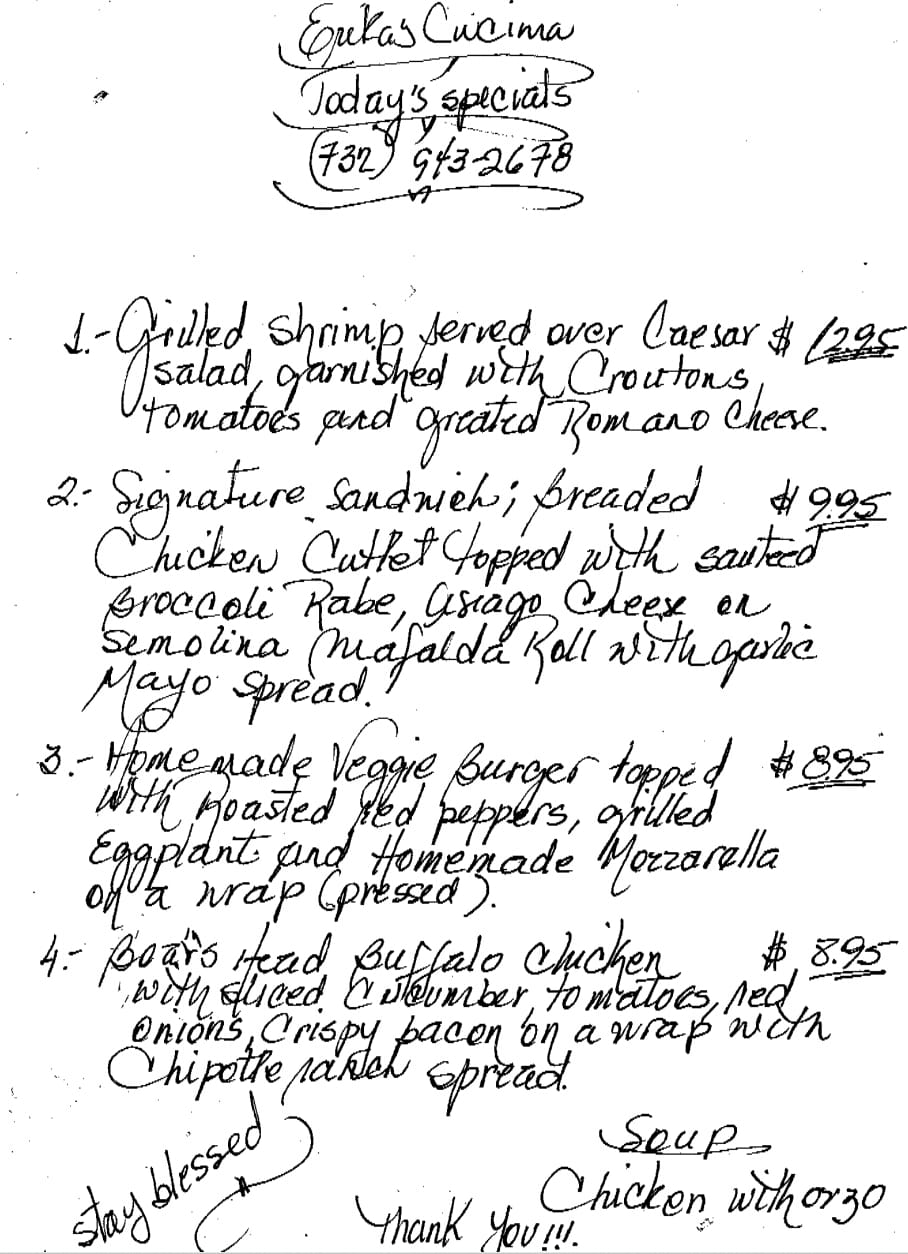 Erikas Cucima
Today's specials
(732) 943-2678
1.- Grilled shrimp served over Caesar $ 1295
salad, garnished with Croutons,
tomatoes and greated Romano Cheese.
2.- Signature Sandwich; breaded $ 995
Chicken Cutlet topped with sauteed
Broccoli Rabe, Asiago Cheese on
Semolina Mafalda Roll with garlic
Mayo Spread.
3.- Homemade Veggie Burger topped $ 895
with Roasted Red peppers, grilled
Eggplant and Homemade Mozzarella
on a wrap (pressed).
4.- Boar's Head Buffalo Chicken $ 8.95
with sliced Cucumber, tomatoes, red
onions, Crispy bacon on a wrap with
Chipotle ranch spread.
Soup
Chicken with orzo
stay blessed
Thank You!!!